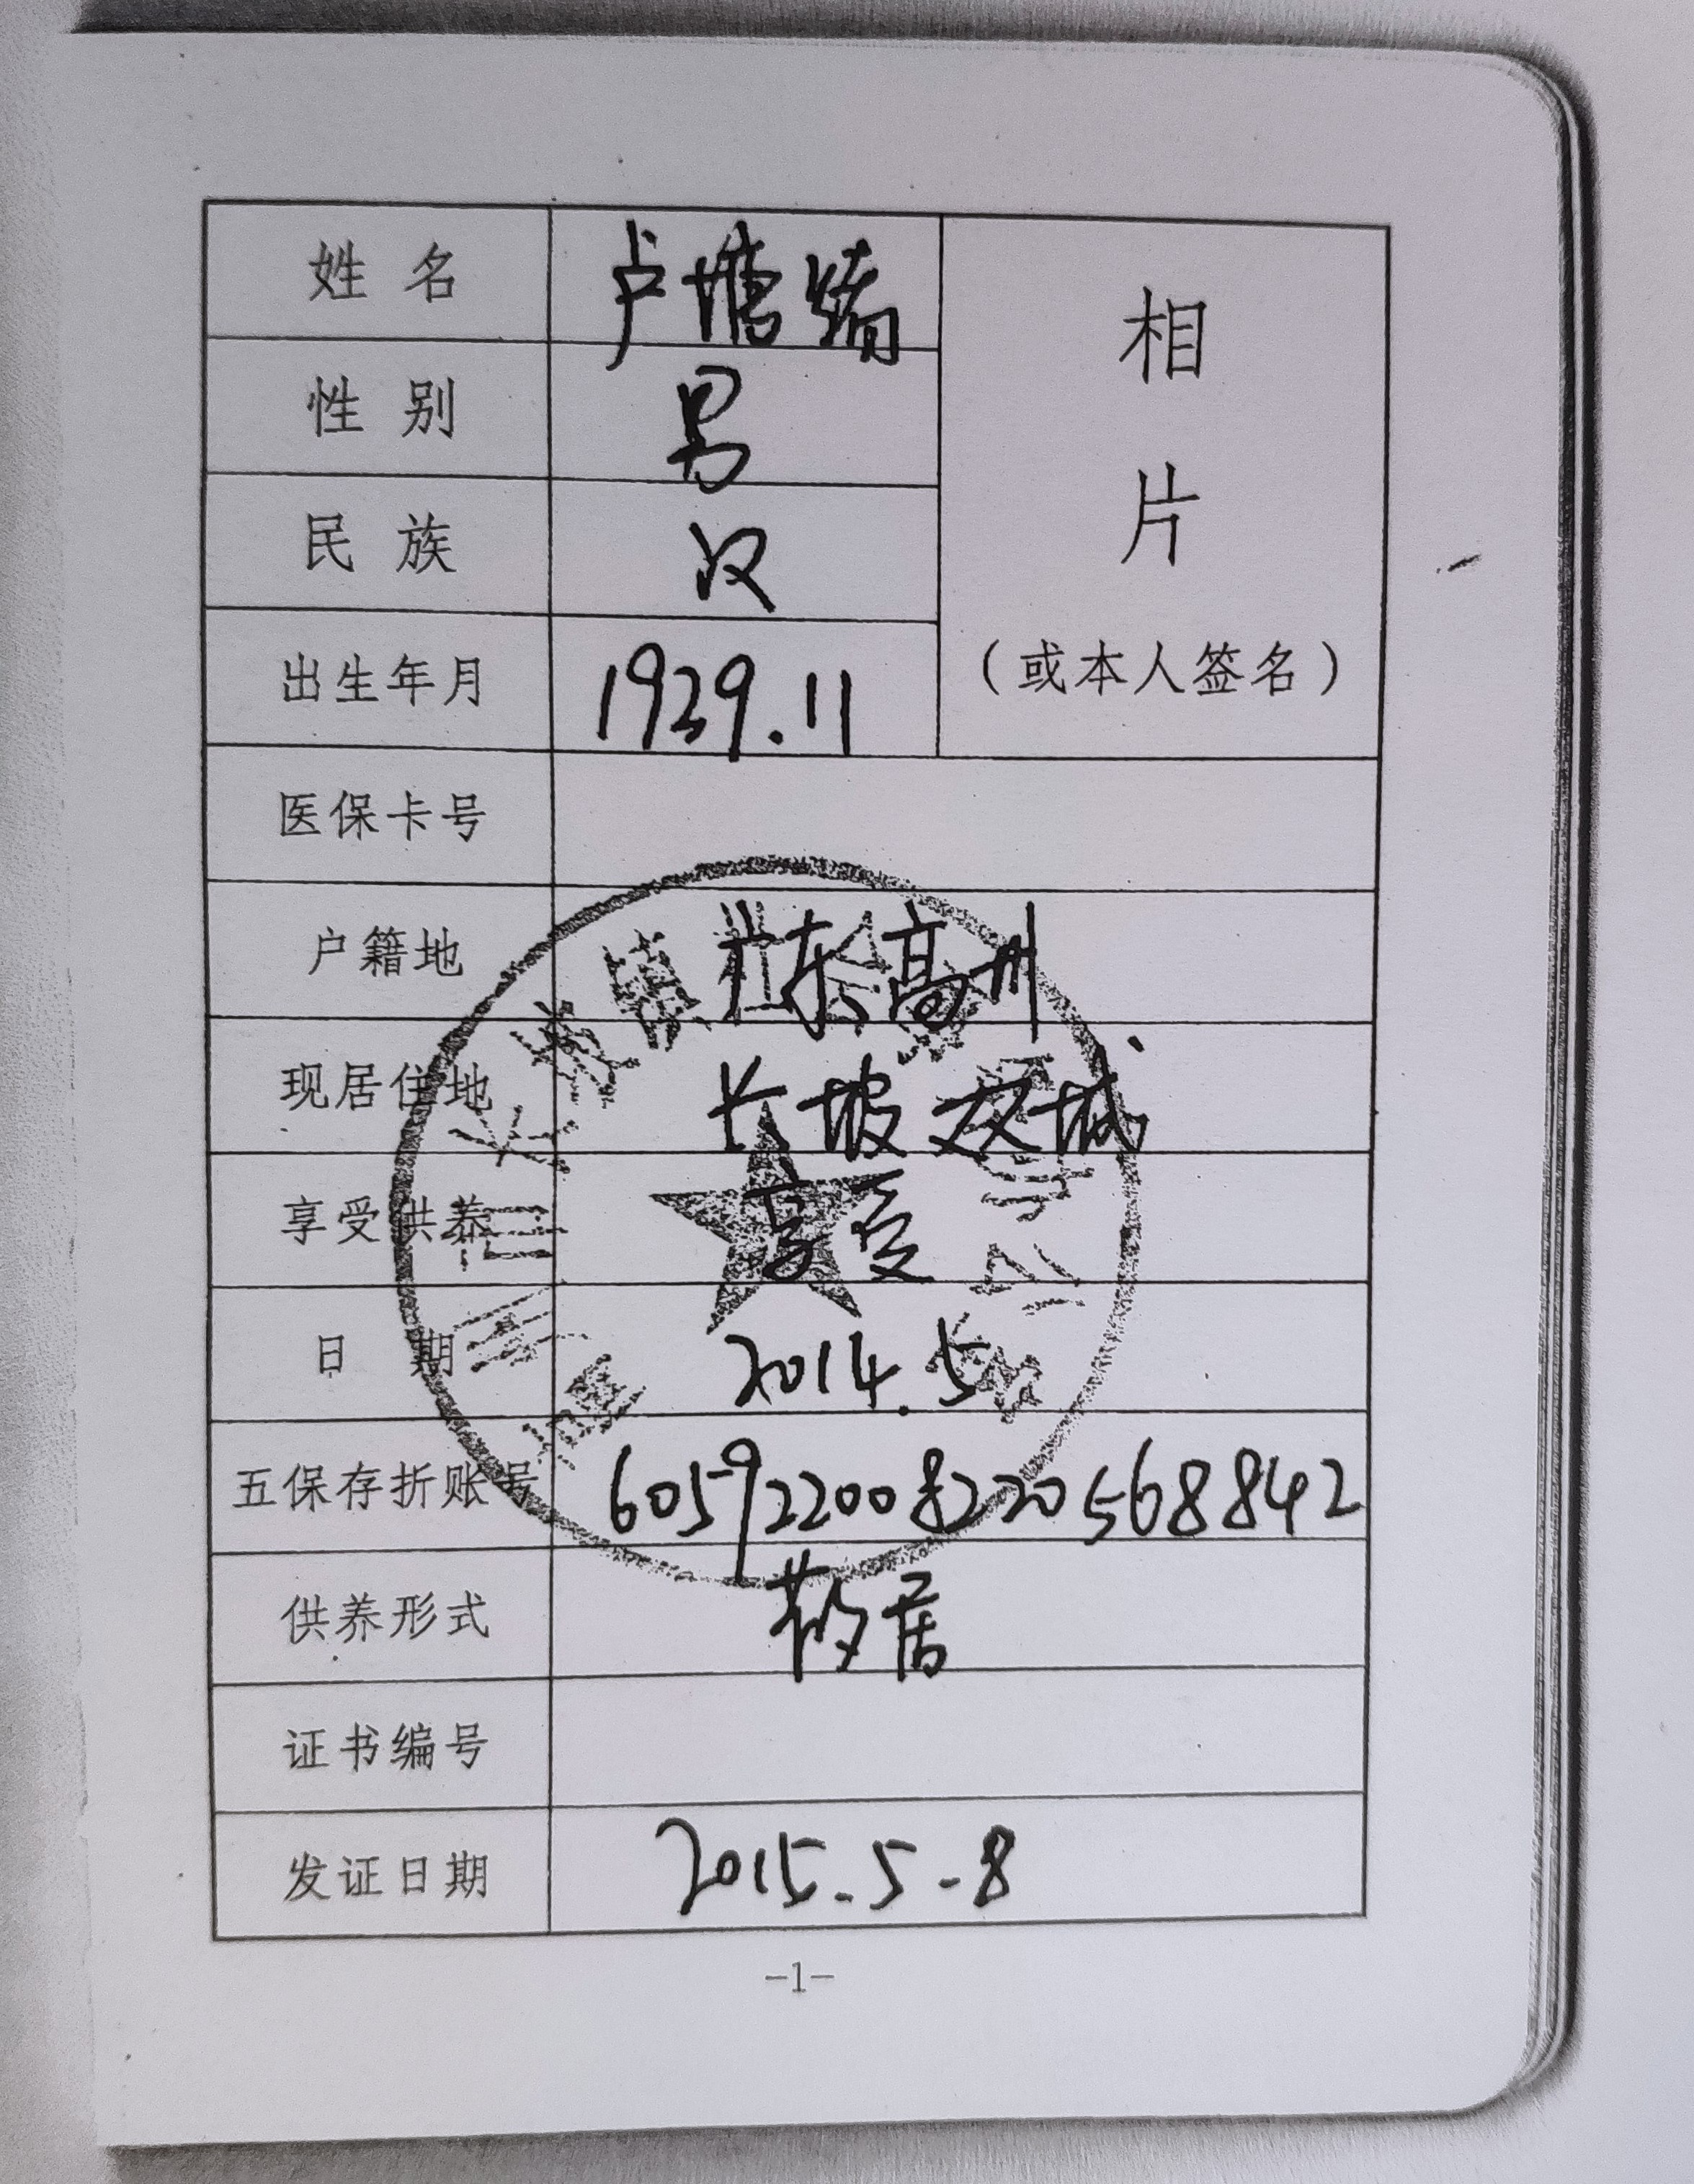 姓名 卢塘
性别 男
民族 汉
出生年月 1929.11
相片
(或本人签名)
医保卡号
户籍地 广东高州
现居住地 长坡 城
享受供养 享受
日期 2014.5
五保存折账号 605922008220568842
供养形式 散居
证书编号
发证日期 2015.5-8
-1-
长坡镇社会事务办公室